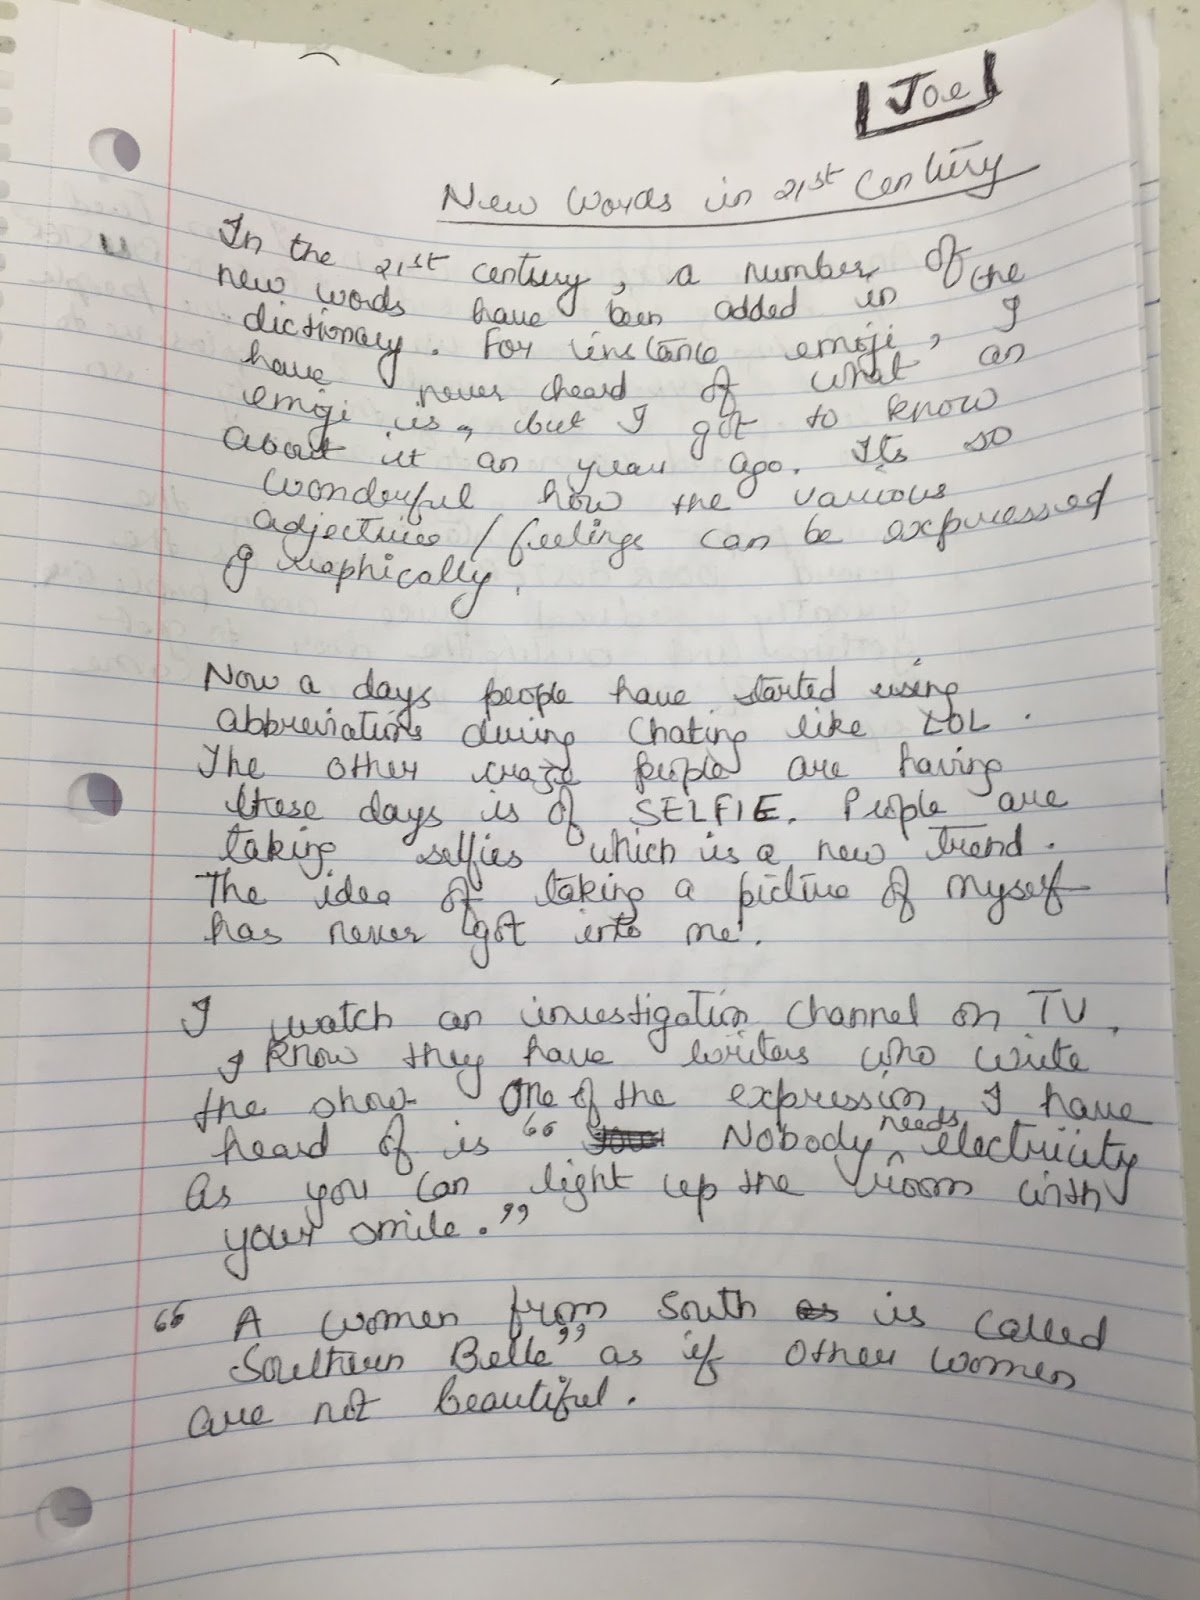 Joe
New Words in 21st Century
In the 21st century, a number of
new words have been added in the
dictionary. For instance emoji, I
have never heard of what an
emoji is, but I got to know
about it an year ago. Its so
wonderful how the various
adjectives / feelings can be expressed
graphically.
Now a days people have started using
abbreviations during Chating like LOL.
The other craze people are having
these days is of SELFIE. People are
taking selfies which is a new trend.
The idea of taking a picture of myself
has never got into me.
I watch an investigation channel on TV.
I know they have writers who write
the show. One of the expressions I have
heard of is " Nobody needs electricity
As you can light up the room with
your smile."
" A women from South is called
Southern Belle" as if other women
are not beautiful.